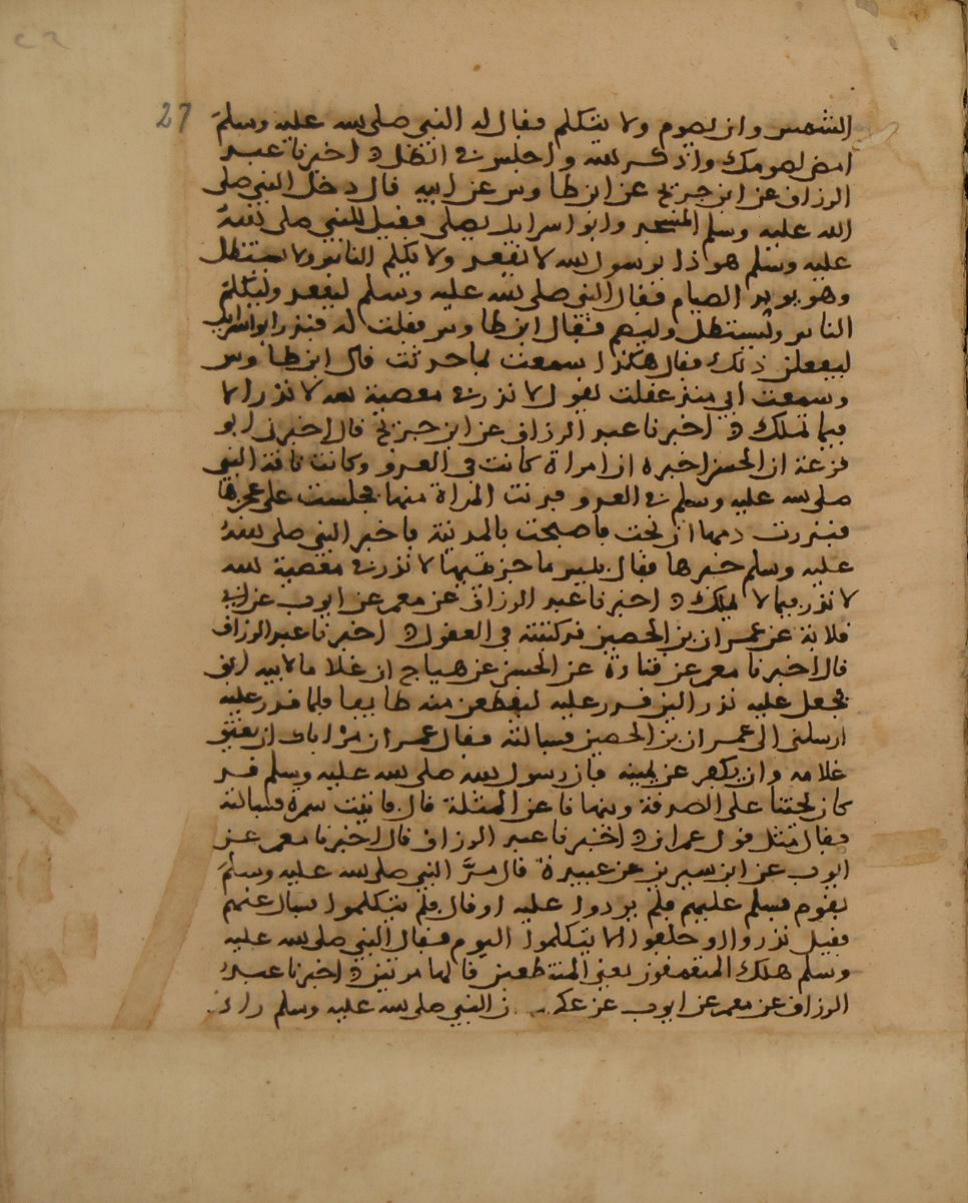 27
الشمس وان يصوم ولا يتكلم فقال له النبي صلى الله عليه وسلم
امض لصومك واذكر الله واجلس في الظل اخبرنا عبد
الرزاق عن ابن جريج عن ابن طاوس عن ابيه قال دخل النبي صلى
الله عليه وسلم المسجد وابو اسرايل يصلي فقيل للنبي صلى الله
عليه وسلم هو ذا يرسول الله لا يقعد ولا يكلم الناس ولا يستظل
وهو يريد الصيام فقال النبي صلى الله عليه وسلم ليقعد وليكلم
الناس وليستظل وليصم فقال ابن طاوس فقلت له فنذر ابو اسرايل
ليفعلن ذلك فقال هكذا سمعت لما حدثت قال ابن طاوس
وسمعت ابي منذ عقلت يقول لا نذر في معصية الله لا نذر الا
فيما تملك اخبرنا عبد الرزاق عن ابن جريج قال اخبرني ابو
قزعة ان الحسن اخبره ان امراة كانت في العدو وكانت ناقة النبي
صلى الله عليه وسلم في العدو فدنت المراة منها فجلست على عجزها
فنذرت دمها ان نجت فاصبحت بالمدينة فاخبر النبي صلى الله
عليه وسلم خبرها فقال بيس ما جزيتها لا نذر في معصية الله
لا نذر فيما لا يملك اخبرنا عبد الرزاق عن معمر عن ايوب عن ابي
قلابة عن عمران بن الحصين فركنته في العقول اخبرنا عبد الرزاق
قال اخبرنا معمر عن قتادة عن الحسن عن هياج ان غلاما لابيه ابق
فجعل عليه نذرا لين قدر عليه ليقطعن منه طابقا فلما قدر عليه
ارسلني الى عمران بن الحصين فسالته فقال عمران مر اباك ان يعتق
غلامه وان يكفر عن يمينه فان رسول الله صلى الله عليه وسلم قد
كان يحثنا على الصدقة وينهانا عن المثلة قال فاتيت سمرة فسالته
فقال مثل قول عمران اخبرنا عبد الرزاق قال اخبرنا معمر عن
ايوب عن ابن سيرين عن عبيدة قال مر النبي صلى الله عليه وسلم
بقوم فسلم عليهم فلم يردوا عليه او قال فلم يتكلموا فسال عنهم
فقيل نذروا او حلفوا الا يتكلموا اليوم فقال النبي صلى الله عليه
وسلم هلك المتعمقون يعني المتنطعين قالها مرتين اخبرنا عبد
الرزاق عن معمر عن ايوب عن النبي صلى الله عليه وسلم